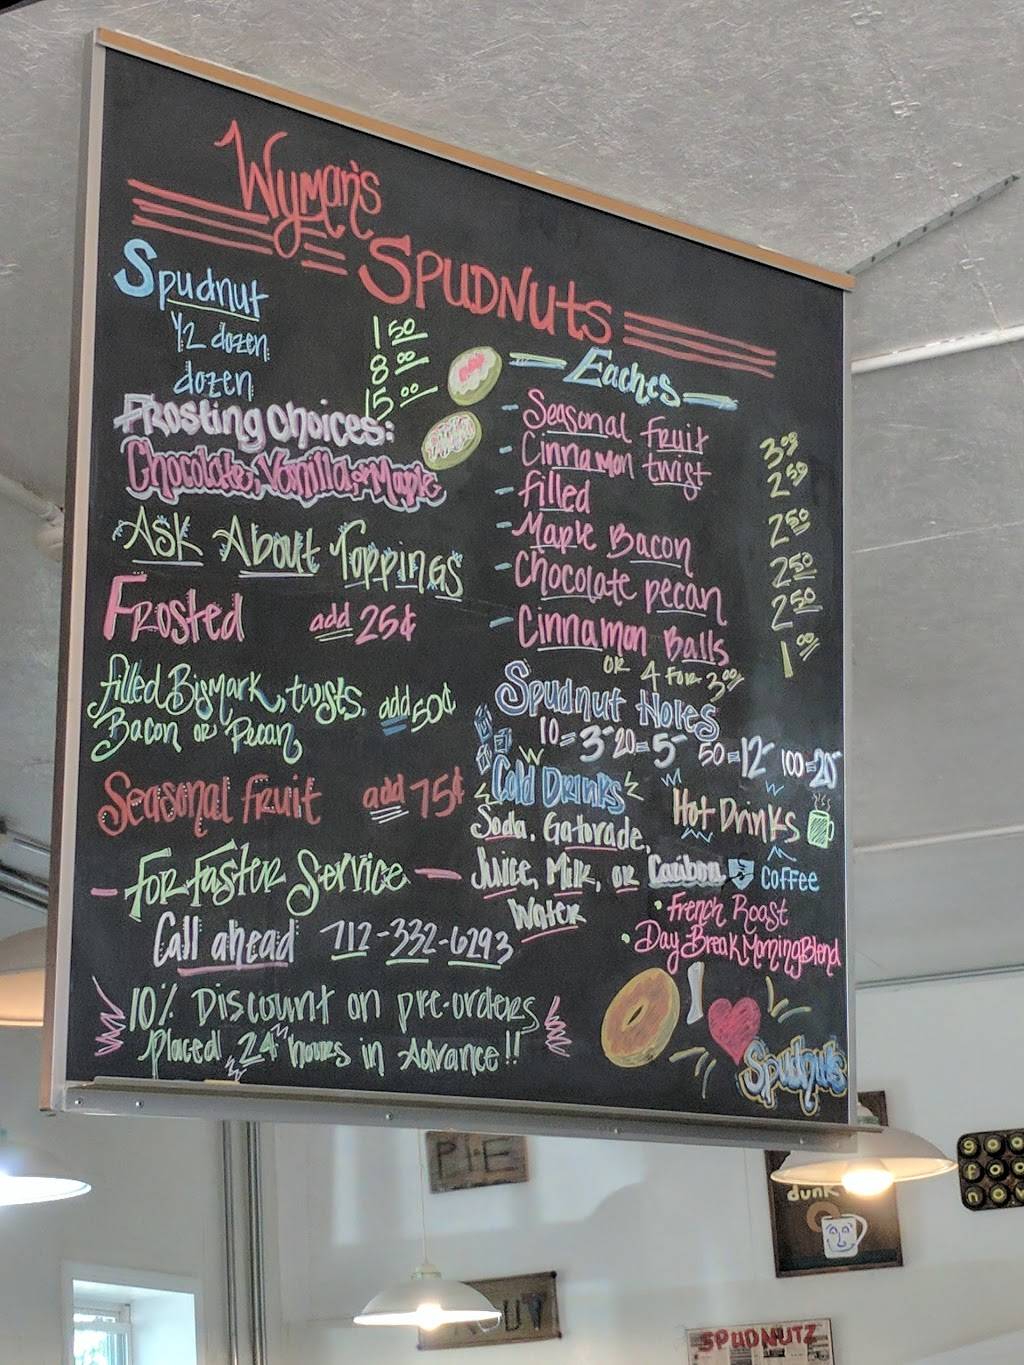 Wyman's
SPUDNUTS
Spudnut 1 50
1/2 dozen 8 00
dozen 15 00
Frosting Choices:
Chocolate, Vanilla, or Maple
ASK About Toppings
Frosted add 25¢
filled Bismark, twists, add 50¢
Bacon or Pecan
Seasonal fruit add 75¢
- For Faster Service -
Call ahead 712-332-6293
10% Discount on pre-orders
Placed 24 hours in Advance!!
Eaches
- Seasonal fruit 3.00
- Cinnamon twist 2 50
- filled 2 50
- Maple Bacon 2 50
- Chocolate pecan 2 50
- Cinnamon Balls 1 00
OR 4 FOR 3 00
Spudnut Holes
10=3- 20=5- 50=12- 100=20-
Cold Drinks
Soda, Gatorade,
Juice, Milk, or
Water
Hot Drinks
Caribou Coffee
• French Roast
• DayBreak Morning Blend
I
Spudnuts
PIE
dunk
SPUDNUTZ